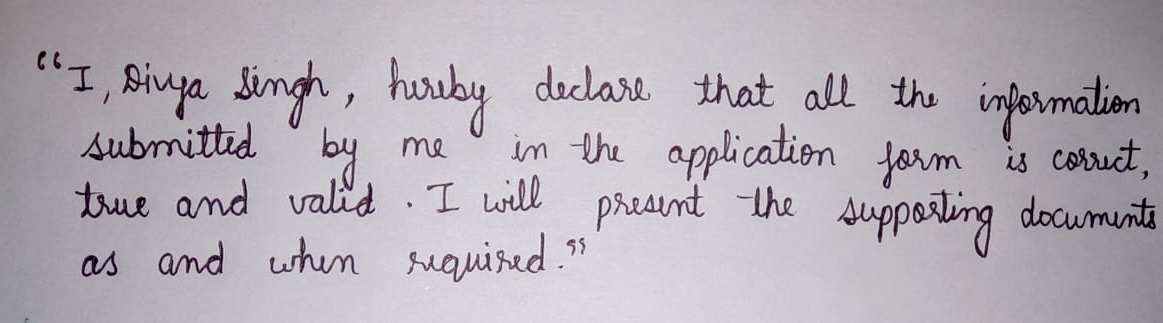 "I, Divya Singh, hereby declare that all the information
submitted by me in the application form is correct,
true and valid. I will present the supporting documents
as and when required."